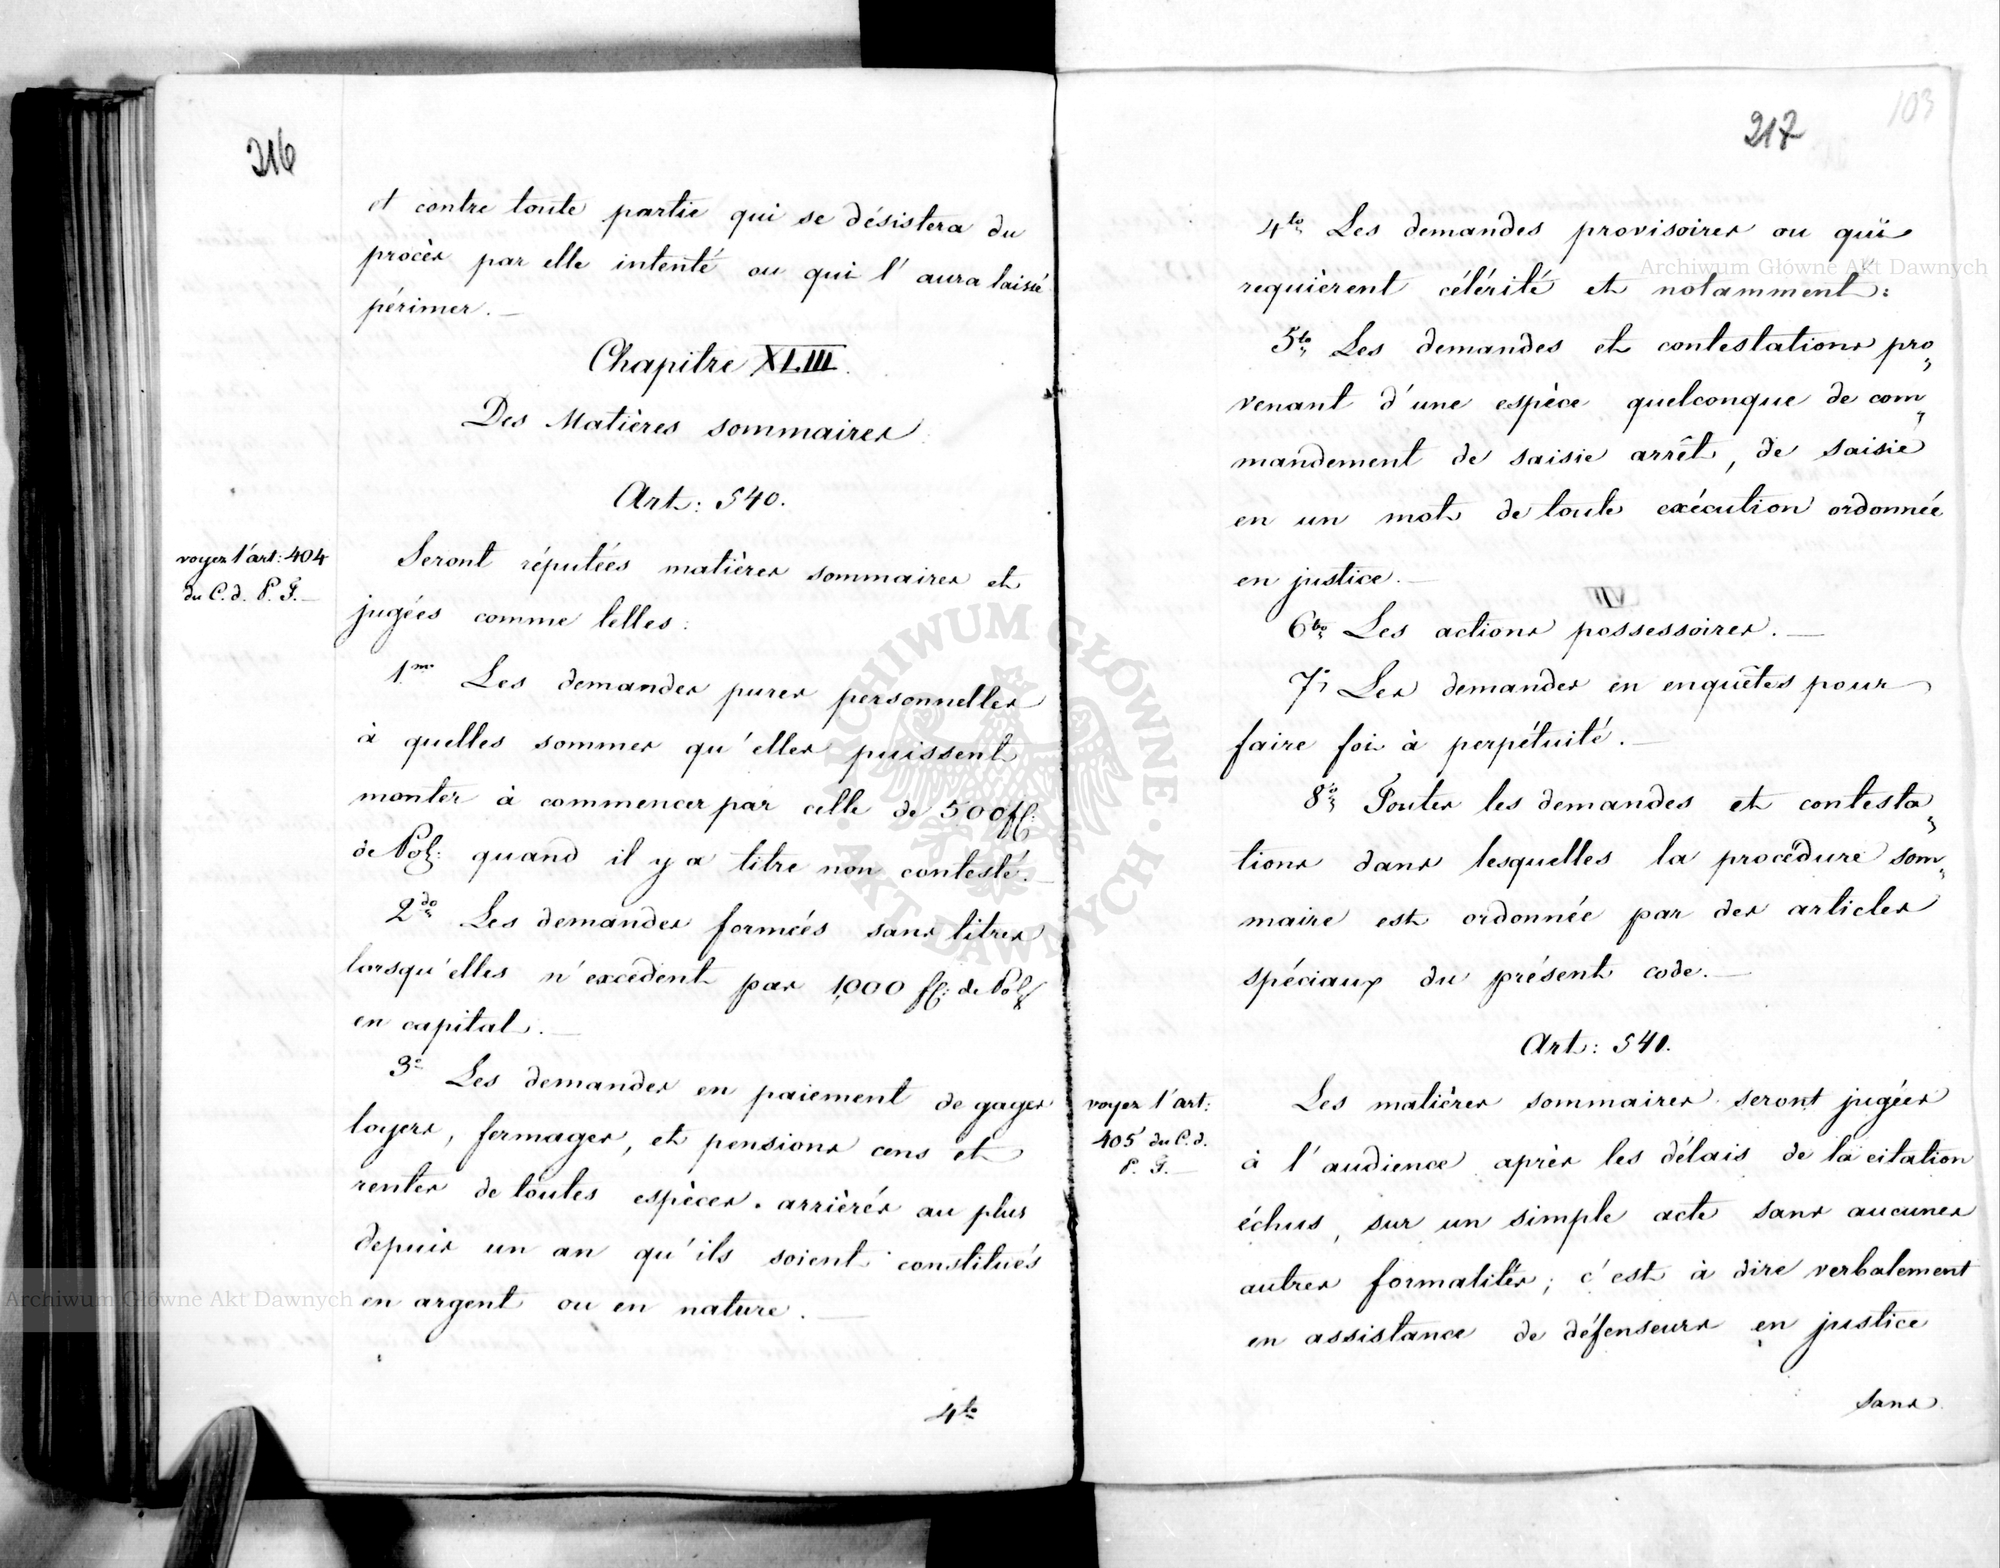 216
et contre toute partie qui se désistera du
procès par elle intenté ou qui l'aura laissé
périmer. —
Chapitre XLIII.
Des Matières sommaires
Art: 540.
voyez l'art: 404
du C. d. P. F. —
Seront réputées matières sommaires et
jugées comme telles:
1mo Les demandes pures personnelles
à quelles sommes qu'elles puissent
monter à commencer par celle de 500 fl:
de Pol: quand il y a titre non contesté. —
2do Les demandes formées sans titres
lorsqu'elles n'excèdent pas 1,000 fl: de Pol:
en capital. —
3o Les demandes en paiement de gages
loyers, fermages, et pensions cens et
rentes de toutes espèces. arriérés au plus
depuis un an qu'ils soient constitués
en argent ou en nature. —
4to
103
217
4to Les demandes provisoires ou qui
requièrent célérité et notamment:
5to Les demandes et contestations pro„
venant d'une espèce quelconque de com„
mandement de saisie arrêt, de saisie
en un mot de toute exécution ordonnée
en justice. —
6to Les actions possessoires. —
7o Les demandes en enquêtes pour
faire foi à perpétuité. —
8o Toutes les demandes et contesta„
tions dans lesquelles la procédure som„
maire est ordonnée par des articles
spéciaux du présent code. —
Art: 541.
voyez l'art:
405 du C. d.
P. F. —
Les matières sommaires seront jugées
à l'audience après les délais de la citation
échus, sur un simple acte sans aucunes
autres formalités; c'est à dire verbalement
en assistance de défenseurs en justice
sans
Archiwum Główne Akt Dawnych
Archiwum Główne Akt Dawnych
ARCHIWUM GŁÓWNE AKT DAWNYCH